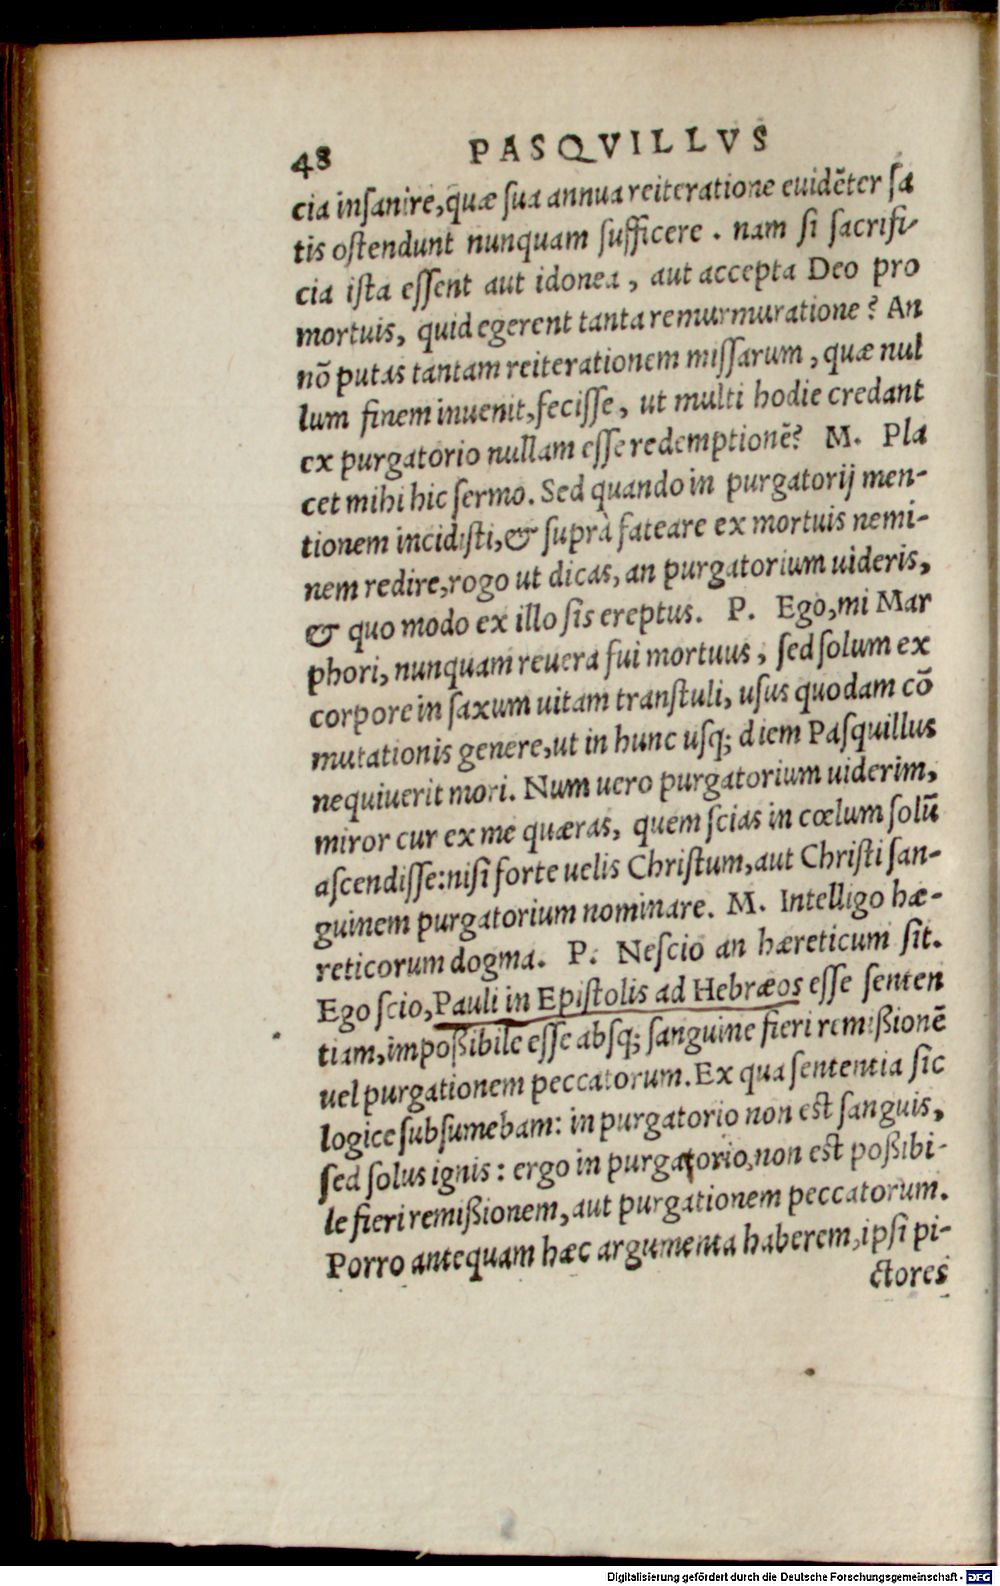 48 PASQVILLVS
cia insanire, quæ sua annua reiteratione euidẽter sa
tis ostendunt nunquam sufficere. nam si sacrifi-
cia ista essent aut idonea, aut accepta Deo pro
mortuis, quid egerent tanta remurmuratione? An
nõ putas tantam reiterationem missarum, quæ nul
lum finem inuenit, fecisse, ut multi hodie credant
ex purgatorio nullam esse redemptionẽ? M. Pla
cet mihi hic sermo. Sed quando in purgatorij men-
tionem incidisti, & suprà fateare ex mortuis nemi-
nem redire, rogo ut dicas, an purgatorium uideris,
& quo modo ex illo sis ereptus. P. Ego, mi Mar
phori, nunquam reuera fui mortuus, sed solum ex
corpore in saxum uitam transtuli, usus quodam cõ
mutationis genere, ut in hunc usq; diem Pasquillus
nequiuerit mori. Num uero purgatorium uiderim,
miror cur ex me quæras, quem scias in cœlum solũ
ascendisse: nisi forte uelis Christum, aut Christi san-
guinem purgatorium nominare. M. Intelligo hæ-
reticorum dogma. P. Nescio an hæreticum sit.
Ego scio, Pauli in Epistolis ad Hebræos esse senten
tiam, impoßibile esse absq; sanguine fieri remißionẽ
uel purgationem peccatorum. Ex qua sententia sic
logice subsumebam: in purgatorio non est sanguis,
sed solus ignis: ergo in purgatorio, non est poßibi-
le fieri remißionem, aut purgationem peccatorum.
Porro antequam hæc argumenta haberem, ipsi pi-
ctores
Digitalisierung gefördert durch die Deutsche Forschungsgemeinschaft - DFG